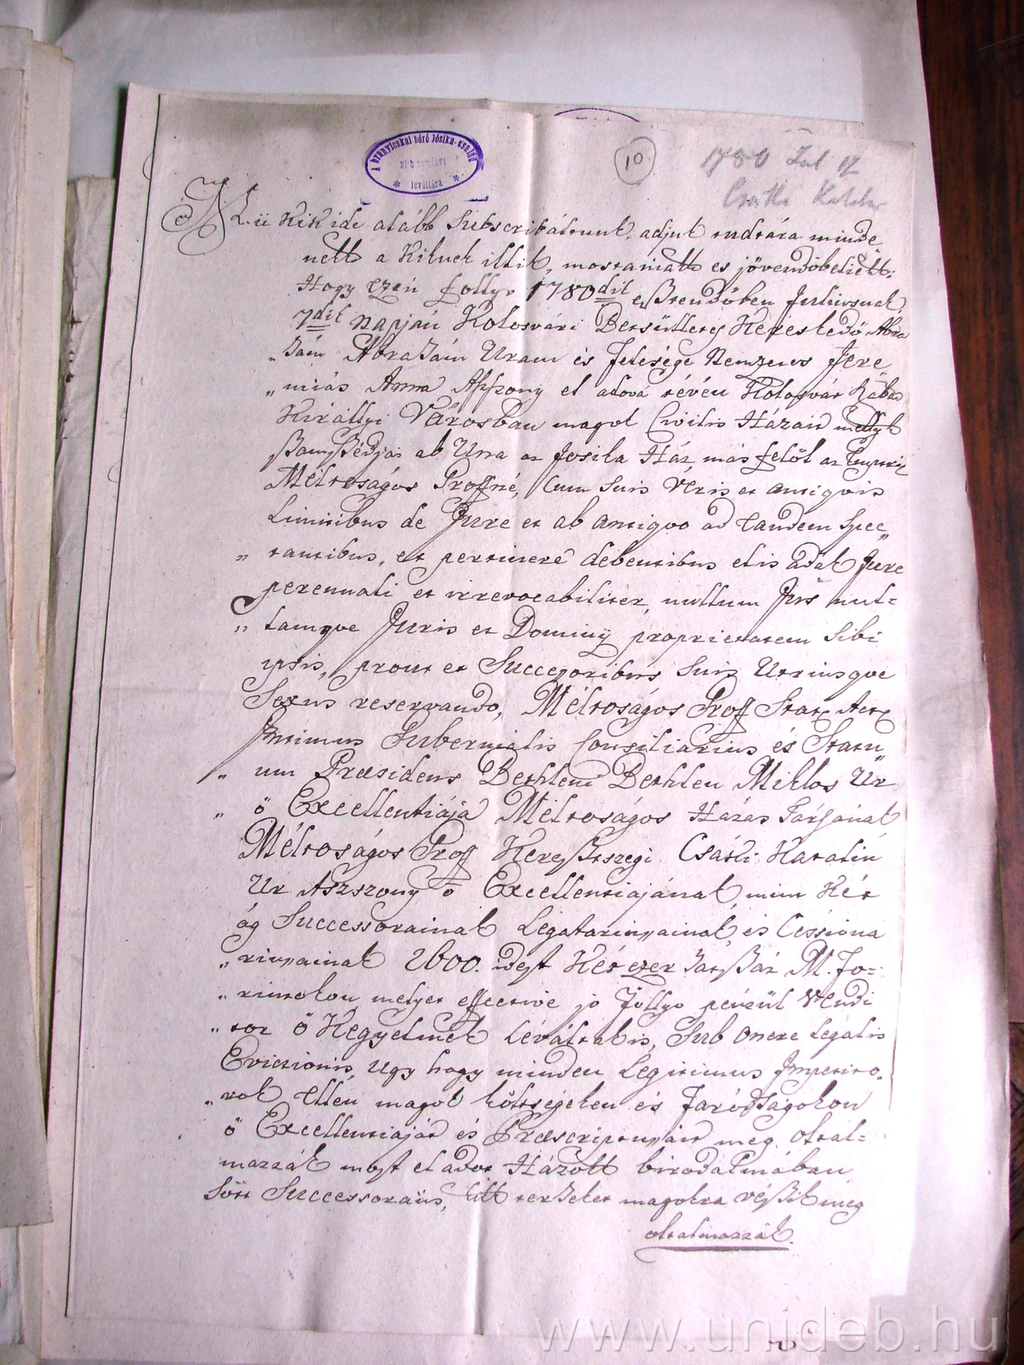 A branyicskai báró Jósika-család
levéltára
10
1780 Jul 17
Csáki Katalin
Mü kik ide alább Subscribáltunk, adjuk tudtára minde
nek a kiknek illik, mostaniak es jövendőbeliek,
Hogy ezen folyo 1780dik esztendőben Juliusnak
7dik napján Kolosvári Betsülletes Kereskedő Abra
„hám Abrahám Uram és Felesége Nemzetes Jere„
„miás Anna Aszszony el adóvá tévén Kolosvár
Királlyi Városban magok Civilis Házait mellyek
Szomszédja ab Una az Josika Ház, más felől az
Méltoságos Groffné, Cum Suis Veris et antiquis
Limitibus de Jure et ab antiquo ad eandem Spec„
„tantibus, et pertinere debentibus el is adák Jure
perennali et irrevocabiliter, nullum Jus nul-
„lamque Juris et Dominij proprietatem Sibi
ipsis, prout et Successoribus Suis Utriusque
Sexus reservando, Méltoságos Groff Stat. Act.
Intimus Gubernialis Consiliarius és Statu„
„um Præsidens Bethleni Bethlen Miklos Ur
„ő Excellentiája Méltoságos Házas Társának
Méltoságos Groff Kereszszegi Csáki Katalin
Ur Aszszony ő Excellentiajának, mint Két
ág Successorainak Legatariussainak, és Cessiona
„riussainak 2600. idest Két ezer hat száz M. Fo-
„rintokon, melyet effective jó follyo pénzül Vendi
„tor ő Kegyelmek lévaltak is, Sub onere Legalis
Evictionis, Ugy hogy minden Legitimus Impetito„
„rok ellen magok költségeken és Faródságokon
ő Excellentiaját és Præscriptussait meg oltal-
mazzák most el adot Házok birodalmában
Sőtt Successoraiis, kik terheket magokra vészik meg
oltalmazzák.
www.unideb.hu